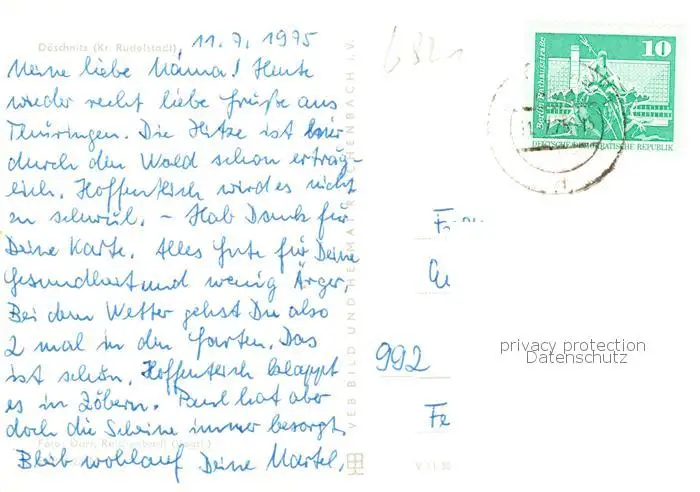 Döschnitz (Kr. Rudolstadt)
11.7.1975
Meine liebe Mama! Heute
wieder recht liebe Grüße aus
Thüringen. Die Hitze ist hier
durch den Wald schon erträg-
lich. Hoffentlich wird es nicht
zu schwül. - Hab Dank für
Deine Karte. Alles Gute für Deine
Gesundheit und wenig Ärger.
Bei dem Wetter gehst Du also
2 mal in den Garten. Das
ist schön. Hoffentlich klappt
es in Zöbern. Paul hat aber
doch die Scheine immer besorgt.
Bleib wohlauf Deine Martel.
VEB BILD UND HEIMAT REICHENBACH I. V.
V 11 30
10
Berlin, Rathausstraße
DEUTSCHE DEMOKRATISCHE REPUBLIK
992
Fe
privacy protection
Datenschutz